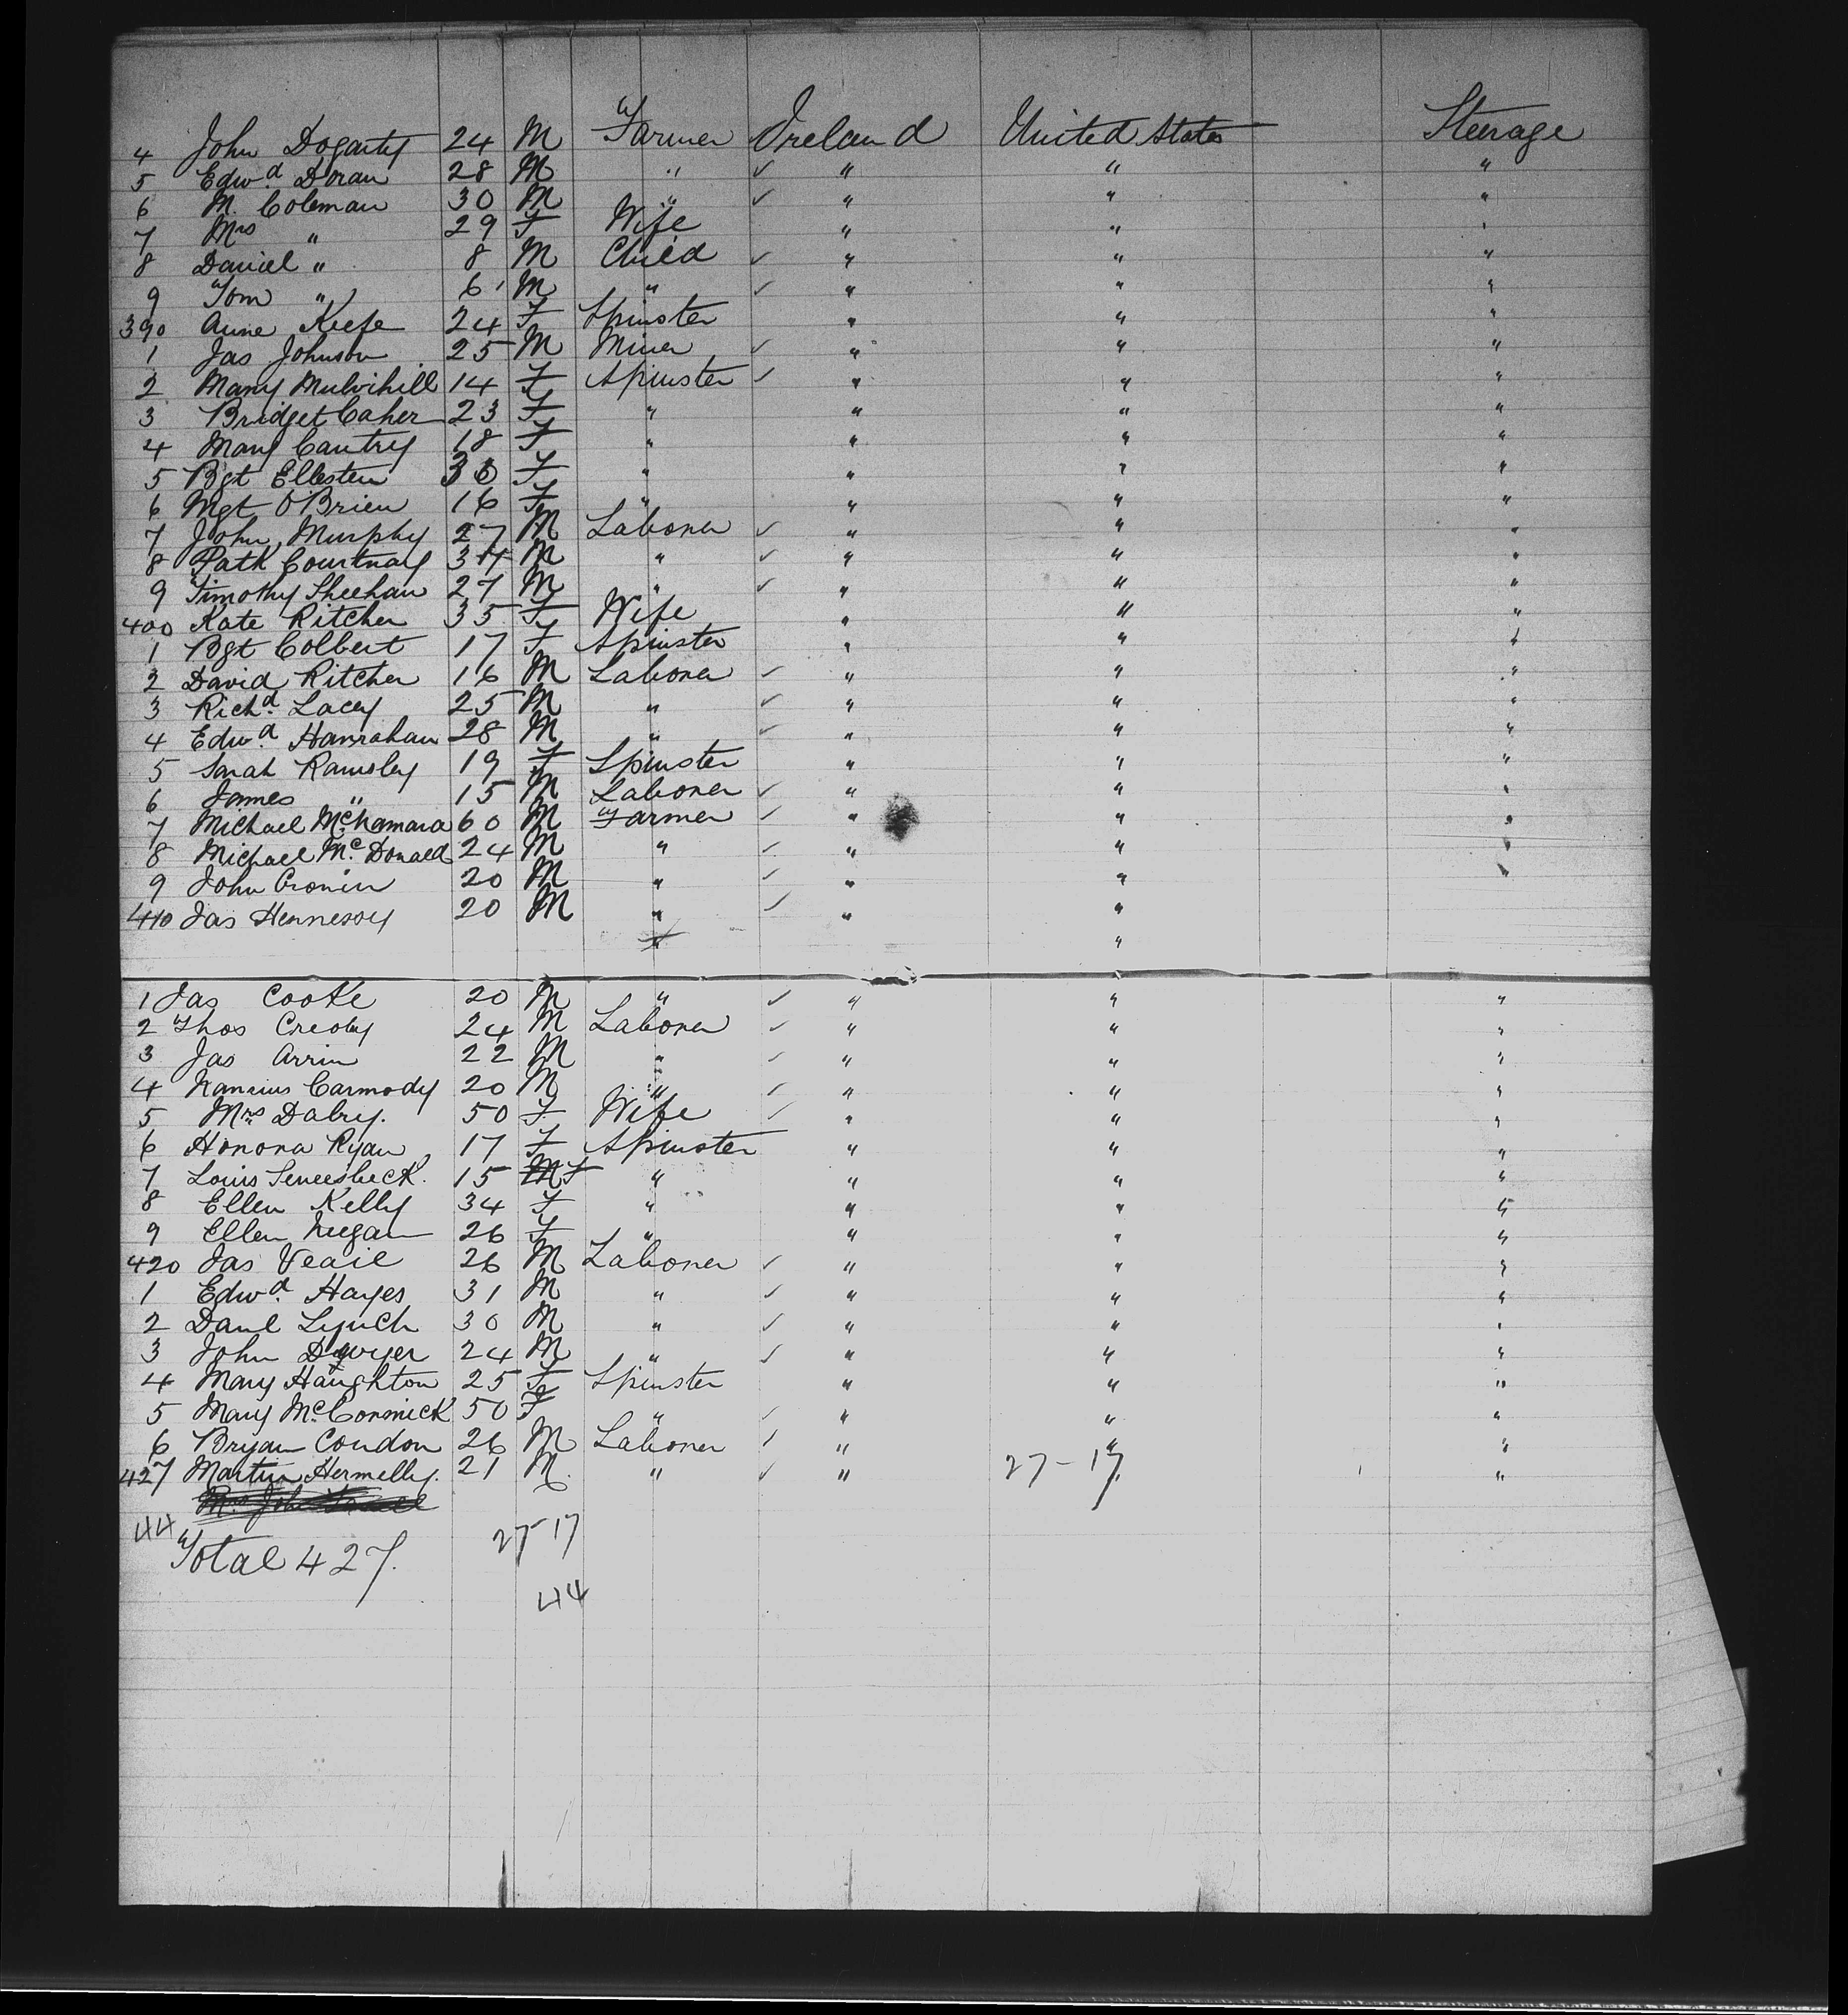 4 John Dogarty 24 M Farmer Ireland United States Steerage
5 Edwd. Doran 28 M " ✓ " " "
6 M. Coleman 30 M " ✓ " " "
7 Mrs " 29 F Wife " " "
8 Daniel " 8 M Child ✓ " " "
9 Tom " 6 M " ✓ " " "
390 Anne Keefe 24 F Spinster " " "
1 Jas Johnson 25 M Miner ✓ " " "
2 Mary Mulvihill 14 F Spinster ✓ " " "
3 Bridget Caher 23 F " " " "
4 Mary Cantry 18 F " " " "
5 Bgt Ellesten 30 F " " " "
6 Mgt O'Brien 16 F " " " "
7 John Murphy 27 M Laborer ✓ " " "
8 Patk Courtnay 34 M " ✓ " " "
9 Timothy Sheehan 27 M " ✓ " " "
400 Kate Ritcher 35 F Wife " " "
1 Bgt Colbert 17 F Spinster " " "
2 David Ritcher 16 M Laborer ✓ " " "
3 Richd. Lacey 25 M " ✓ " " "
4 Edwd. Hanrahan 28 M " ✓ " " "
5 Sarah Ramsley 19 F Spinster " " "
6 James " 15 M Laborer ✓ " " "
7 Michael McNamara 60 M Farmer ✓ " " "
8 Michael McDonald 24 M " ✓ " " "
9 John Cronin 20 M " ✓ " " "
410 Jas Hennessy 20 M " ✓ " "
" "
1 Jas Cooke 20 M " ✓ " " "
2 Thos Creoby 24 M Laborer ✓ " " "
3 Jas Arrin 22 M " ✓ " " "
4 Carmody 20 M " ✓ " " "
5 Mrs Dalry. 50 F Wife ✓ " " "
6 Honora Ryan 17 F Spinster " " "
7 Louis 15 M F " " " "
8 Ellen Kelly 34 F " " " "
9 Ellen Neegan 26 F " " " "
420 Jas Veail 26 M Laborer ✓ " " "
1 Edwd. Hayes 31 M " ✓ " " "
2 Danl Lynch 30 M " ✓ " " "
3 John Dwyer 24 M " ✓ " " "
4 Mary Haughton 25 F Spinster " " "
5 Mary McCormick 50 F " ✓ " " "
6 Bryan Condon 26 M Laborer ✓ " " "
427 Martin Hermelly. 21 M. " ✓ " 27-17 " "
Mrs John
44 27-17
Total 427.
44